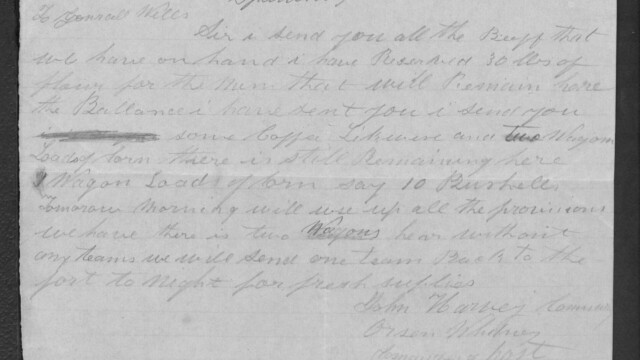 To General Wells
Sir i send you all the Buff that
we have on hand i have Reserved 30 lbs of
flour for the Men that will Remain here
the Ballance i have sent you i send you
some Coffe and two Wagon
Loads of Corn there is still Remaining here
Wagon Loads of Corn say 10 Bushells
Tomorow Morning will use up all the provisions
we have there is two Wagons hear without
any teams we will send one team Back to the
fort to Night for fresh suplies
John Harvey
Orson Whitney